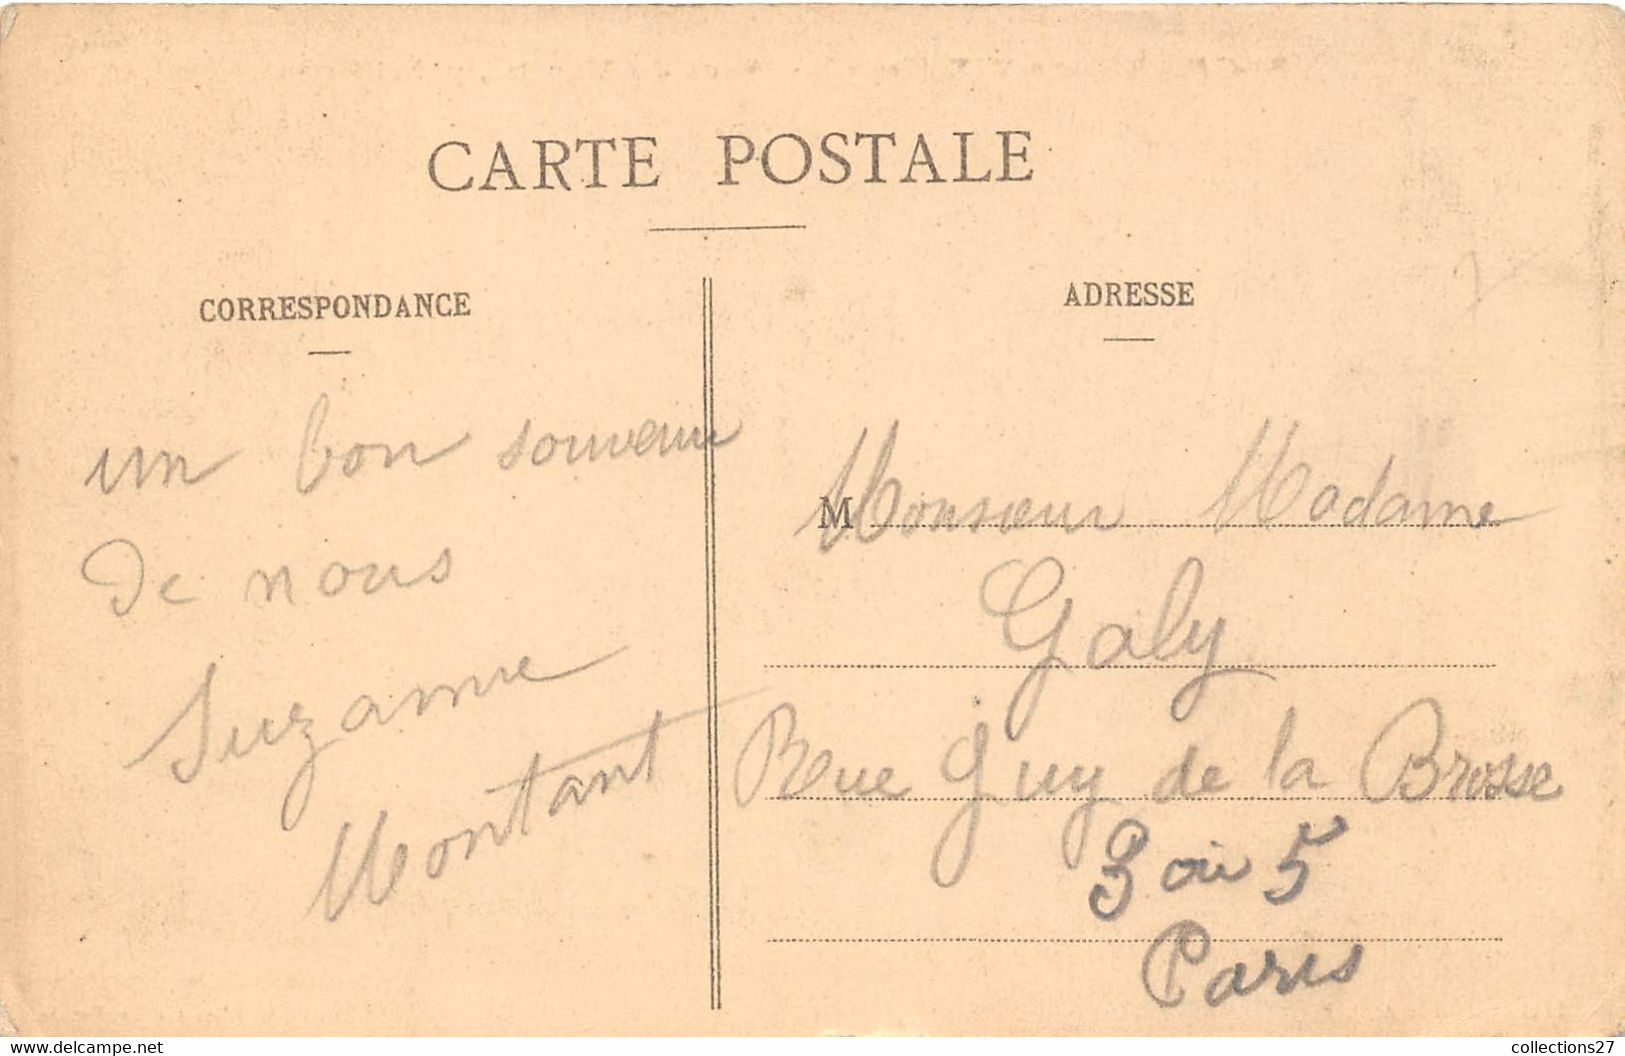 CARTE POSTALE
CORRESPONDANCE
un bon souvenir
de nous
Suzanne
Montant
ADRESSE
M Monsieur Madame
Galy
Rue Guy de la Brosse
3 ou 5
Paris
delcampe.net
collections27